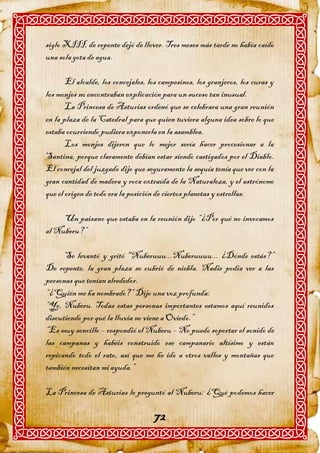 siglo XIII, de repente dejó de llover. Tres meses más tarde no había caído
una sola gota de agua.
El alcalde, los concejales, los campesinos, los granjeros, los curas y
los monjes no encontraban explicación para un suceso tan inusual.
La Princesa de Asturias ordenó que se celebrara una gran reunión
en la plaza de la Catedral para que quien tuviera alguna idea sobre lo que
estaba ocurriendo pudiera exponerla en la asamblea.
Los monjes dijeron que lo mejor sería hacer procesionar a la
Santina, porque claramente debían estar siendo castigados por el Diablo.
El concejal del juzgado dijo que seguramente la sequía tenía que ver con la
gran cantidad de madera y roca extraída de la Naturaleza, y el astrónomo
que el origen de todo era la posición de ciertos planetas y estrellas.
Un paisano que estaba en la reunión dijo "¿Por qué no invocamos
al Nuberu?"
Se levantó y gritó "Nuberuuu...Nuberuuuu... ¿Dónde estás?"
De repente, la gran plaza se cubrió de niebla. Nadie podía ver a las
personas que tenían alrededor.
"¿Quién me ha nombrado?" Dijo una voz profunda:
"Yo, Nuberu. Todas estas personas importantes estamos aquí reunidos
discutiendo por qué la lluvia no viene a Oviedo."
"Es muy sencillo – respondió el Nuberu – No puedo soportar el sonido de
las campanas y habéis construido ese campanario altísimo y están
repicando todo el rato, así que me he ido a otros valles y montañas que
también necesitan mi ayuda."
La Princesa de Asturias le preguntó al Nuberu: ¿Qué podemos hacer
72